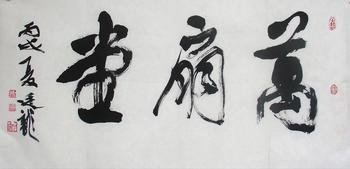 萬扇堂
丙戌夏廷龍